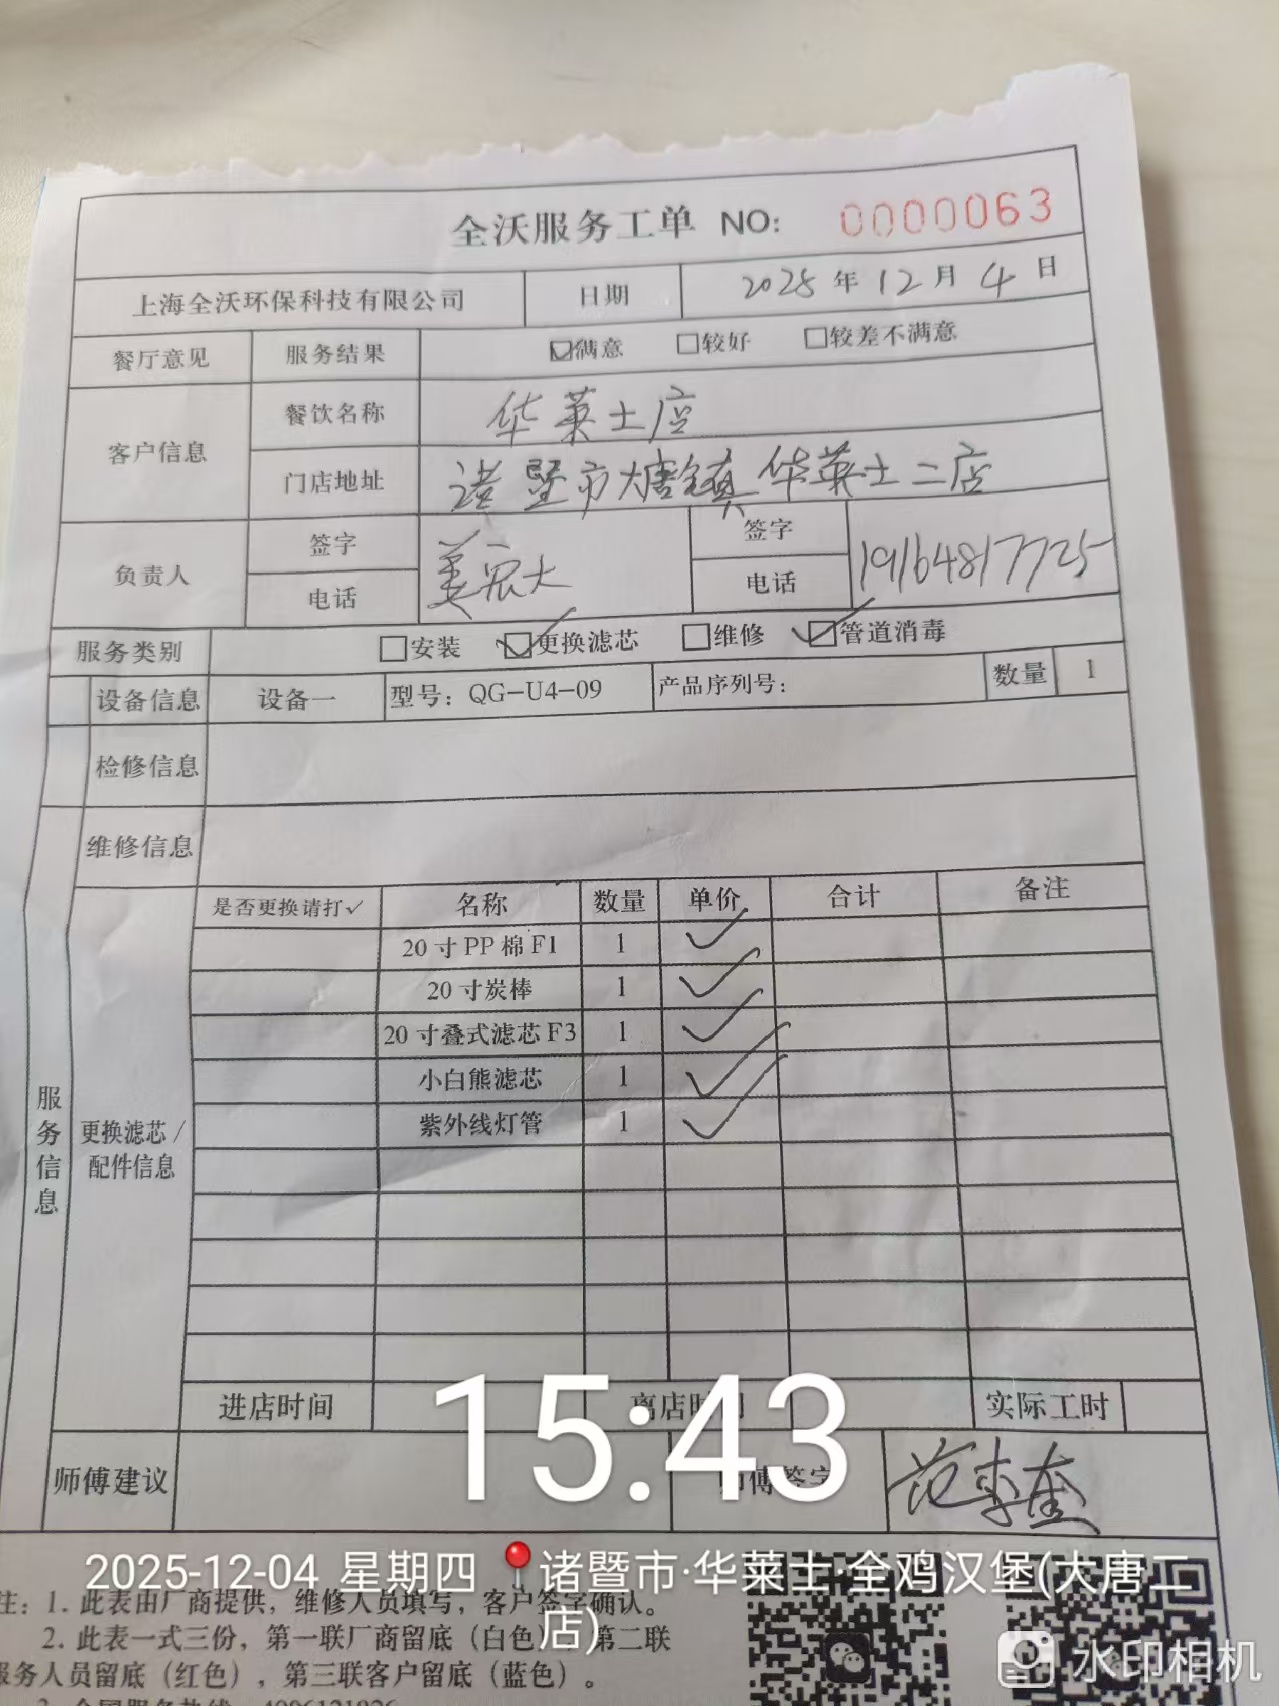 全沃服务工单 NO: 0000063
上海全沃环保科技有限公司 日期 2025年12月4日
餐厅意见 服务结果 ☑满意 □较好 □较差不满意
客户信息 餐饮名称 华莱士店
门店地址 诸暨市大唐镇华莱士二店
负责人 签字 签字
电话 电话 19164817725
服务类别 □安装 ☑更换滤芯 □维修 ☑管道消毒
设备信息 设备一 型号：QG-U4-09 产品序列号： 数量 1
检修信息
维修信息
服务信息
更换滤芯/配件信息
是否更换请打✓ 名称 数量 单价 合计 备注
20寸PP棉F1 1 ✓
20寸炭棒 1 ✓
20寸叠式滤芯F3 1 ✓
小白熊滤芯 1 ✓
紫外线灯管 1 ✓
进店时间 离店时间 实际工时
15:43
师傅建议 师傅签字
2025-12-04 星期四 诸暨市·华莱士·全鸡汉堡(大唐二店)
注：1. 此表由厂商提供，维修人员填写，客户签字确认。
2. 此表一式三份，第一联厂商留底（白色），第二联
服务人员留底（红色），第三联客户留底（蓝色）。
水印相机